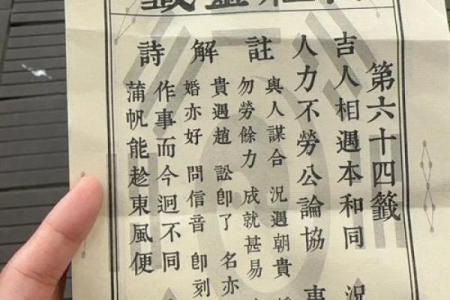 第六十四籤
吉人相遇本和同 況
人力不勞公論協 事
註
與人謀合 況遇朝貴
勿勞餘力 成就甚易
解
貴遇趙 訟卽了 名亦
婚亦好 問信音 卽刻
詩
作事而今迥不同
蒲帆能趁東風便